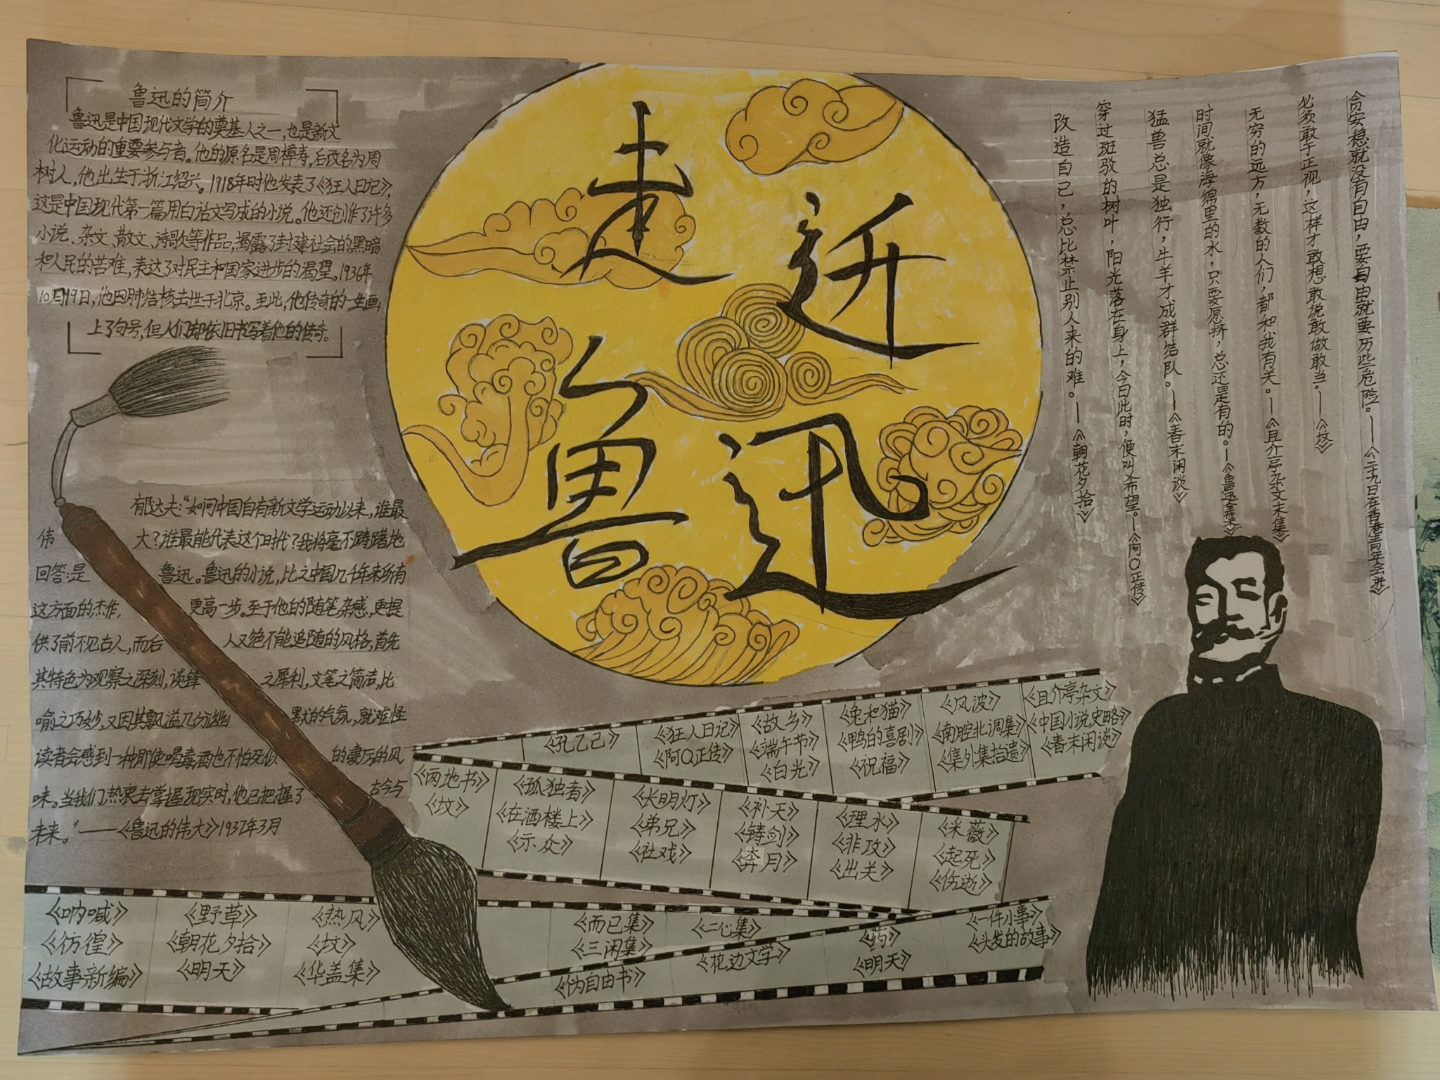 走近
鲁迅
鲁迅的简介
鲁迅是中国现代文学的奠基人之一,也是新文
化运动的重要参与者。他的原名是周樟寿,后改名为周
树人,他出生于浙江绍兴。1918年时他发表了《狂人日记》,
这是中国现代第一篇用白话文写成的小说。他还创作了许多
小说、杂文、散文、诗歌等作品,揭露了封建社会的黑暗
和人民的苦难,表达了对民主和国家进步的渴望。1936年
10月19日,他因肺结核去世于北京。至此,他传奇的一生画
上了句号,但人们却依旧书写着他的传奇。
郁达夫:“如问中国自有新文学运动以来,谁最
伟大?谁最能代表这个时代?我将毫不踌躇地
回答:是鲁迅。鲁迅的小说,比之中国几千年来所有
这方面的杰作,更高一步。至于他的随笔杂感,更提
供了前不见古人,而后人又绝不能追随的风格,首先
其特色为观察之深刻,谈锋之犀利,文笔之简洁,比
喻之巧妙,又因其飘溢几分幽默的气氛,就难怪
读者会感到一种即使喝毒酒也不怕死似的凄厉的风
味。当我们热衷去掌握现实时,他已把握了古今与
未来。”——《鲁迅的伟大》1937年3月
贪安稳就没有自由,要自由就要历些危险。——《二十九日在香港青年会讲》
必须敢于正视,这样才敢想敢说敢做敢当。——《坟》
无穷的远方,无数的人们,都和我有关。——《且介亭杂文末集》
时间就像海绵里的水,只要愿挤,总还是有的。——《鲁迅全集》
猛兽总是独行,牛羊才成群结队。——《春末闲谈》
穿过斑驳的树叶,阳光落在身上,今日此时,便叫义希望。——《阿Q正传》
改造自己,总比禁止别人来的难。——《朝花夕拾》
《孔乙己》
《狂人日记》
《阿Q正传》
《故乡》
《端午节》
《白光》
《兔和猫》
《鸭的喜剧》
《祝福》
《风波》
《南腔北调集》
《集外集拾遗》
《且介亭杂文》
《中国小说史略》
《春末闲谈》
《两地书》
《坟》
《孤独者》
《在酒楼上》
《示众》
《长明灯》
《弟兄》
《社戏》
《补天》
《铸剑》
《奔月》
《理水》
《非攻》
《出关》
《采薇》
《起死》
《伤逝》
《呐喊》
《彷徨》
《故事新编》
《野草》
《朝花夕拾》
《明天》
《热风》
《坟》
《华盖集》
《而已集》
《三闲集》
《伪自由书》
《二心集》
《花边文学》
《药》
《明天》
《一件小事》
《头发的故事》